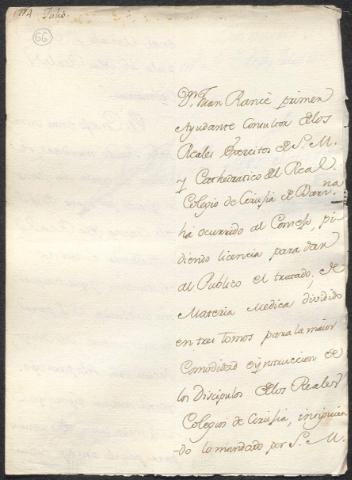 1774 Julio.
66
Dn. Juan Rancè primer
Ayudante Consultor de los
Reales Exercitos de S. M.
y Cathedratico del Real
Colegio de Cirusia de Barna
ha ocurrido al Consejo, pi
diendo licencia para dar
al Publico el tratado, de
Materia Medica dividido
en tres tomos para la maior
Comodidad e ynstruccion de
los Discipulos de los Reales
Colegios de Cirusia, insiguien
do lo mandado por S. M.